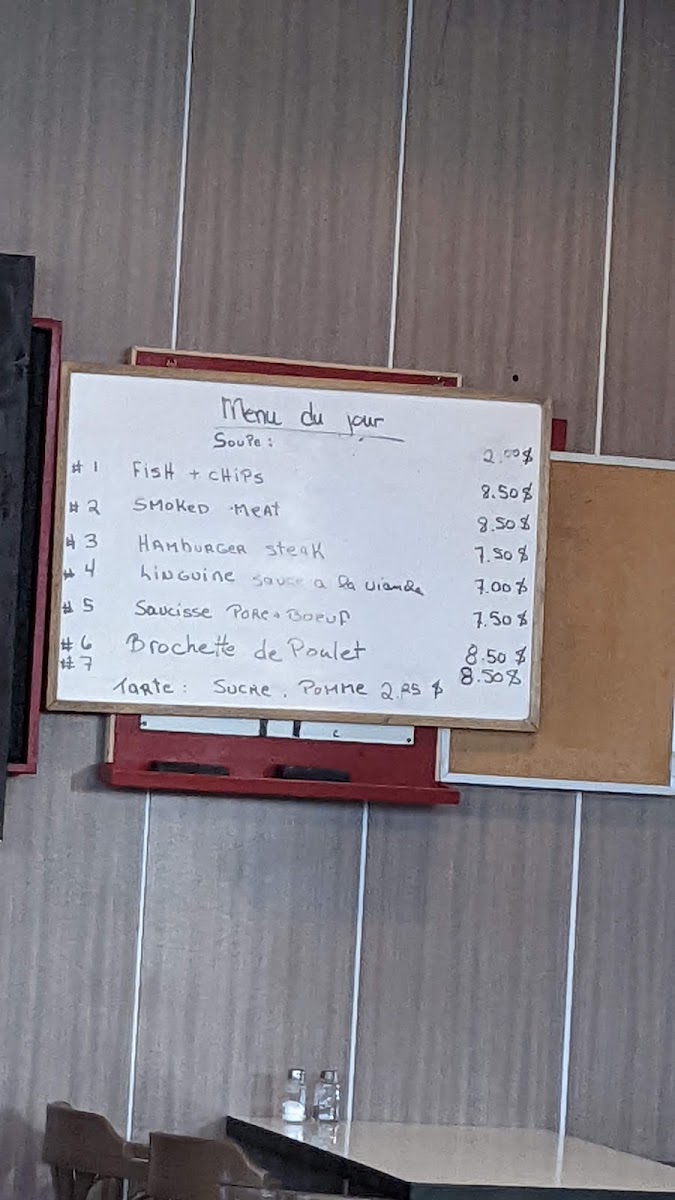 Menu du jour
Soupe: 2.00$
#1 FisH + CHiPS 8.50$
#2 SMOKED MEAT 8.50$
#3 HAMBURGER steak 7.50$
#4 LINGUINE sauce a la viande 7.00$
#5 Saucisse PORC + BOEUF 7.50$
#6 Brochette de Poulet 8.50$
#7 8.50$
TARTE: SUCRE, POMME 2.25$